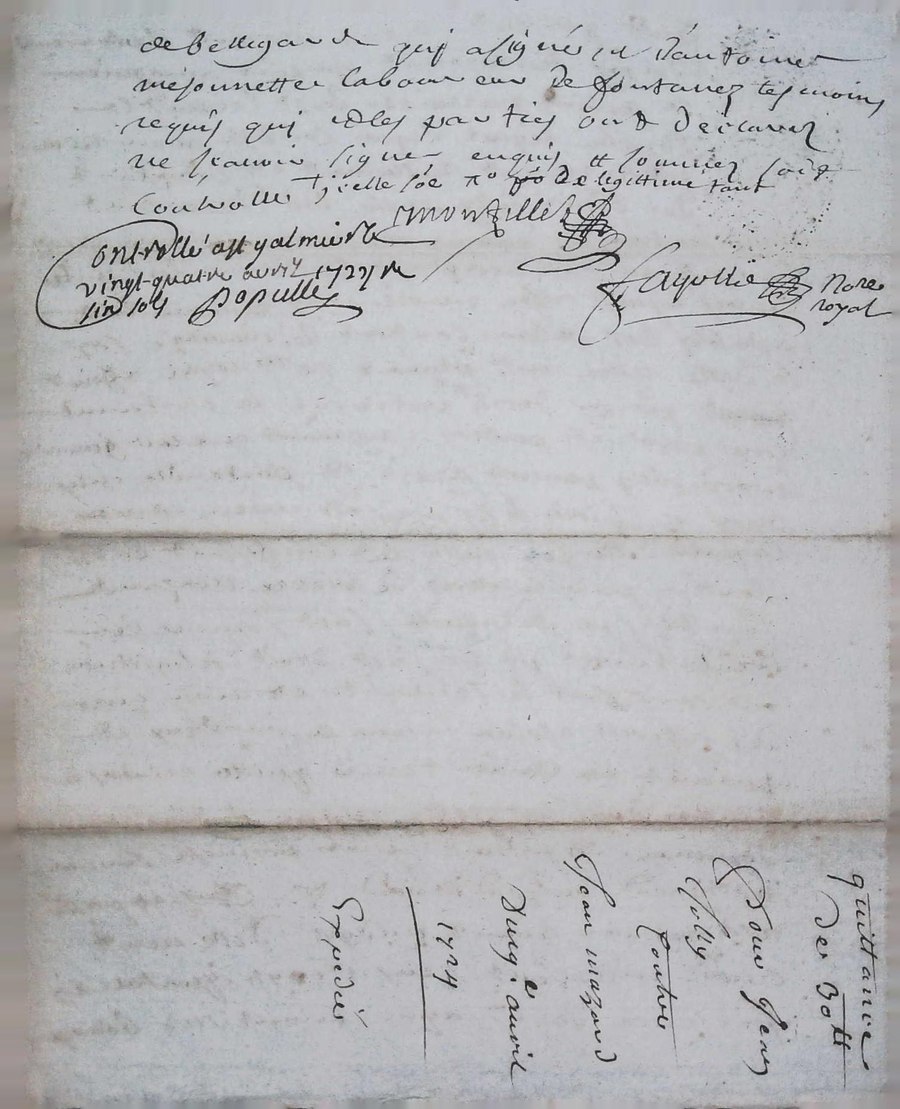 de bellegarde qui a signé et d'antoine
mesonnettes laboureur de fontanez tesmoins
requis qui et les parties ont déclaré
ne scavoir signer enquis et sommés soit
Controllé de legittime tant
montillet
Controllé a st galmier le
vingt quatre avril 1724 Re
six sols populle
fayolle Nore
royal
quittance
de 30tt
Pour Jean
Jolly
Contre
Jean mazard
Du 19e avril
1724
Expediée